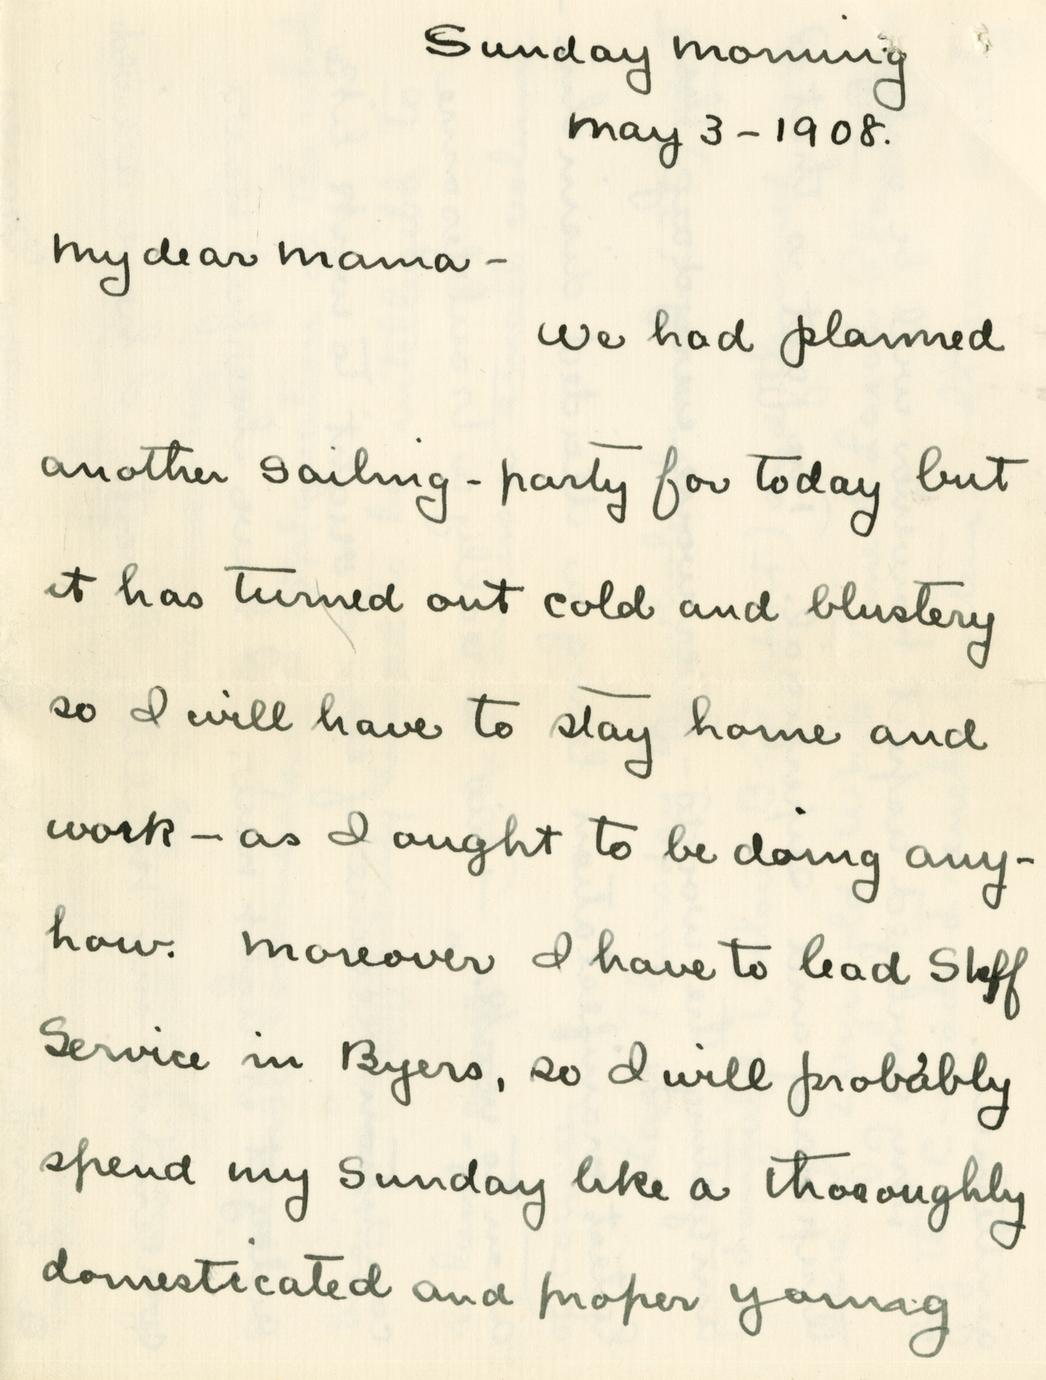 Sunday morning
May 3 - 1908.
My dear Mama -
We had planned
another sailing - party for today but
it has turned out cold and blustery
so I will have to stay home and
work - as I ought to be doing any-
how. Moreover I have to lead
Service in Byers, so I will probably
spend my Sunday like a thoroughly
domesticated and proper young